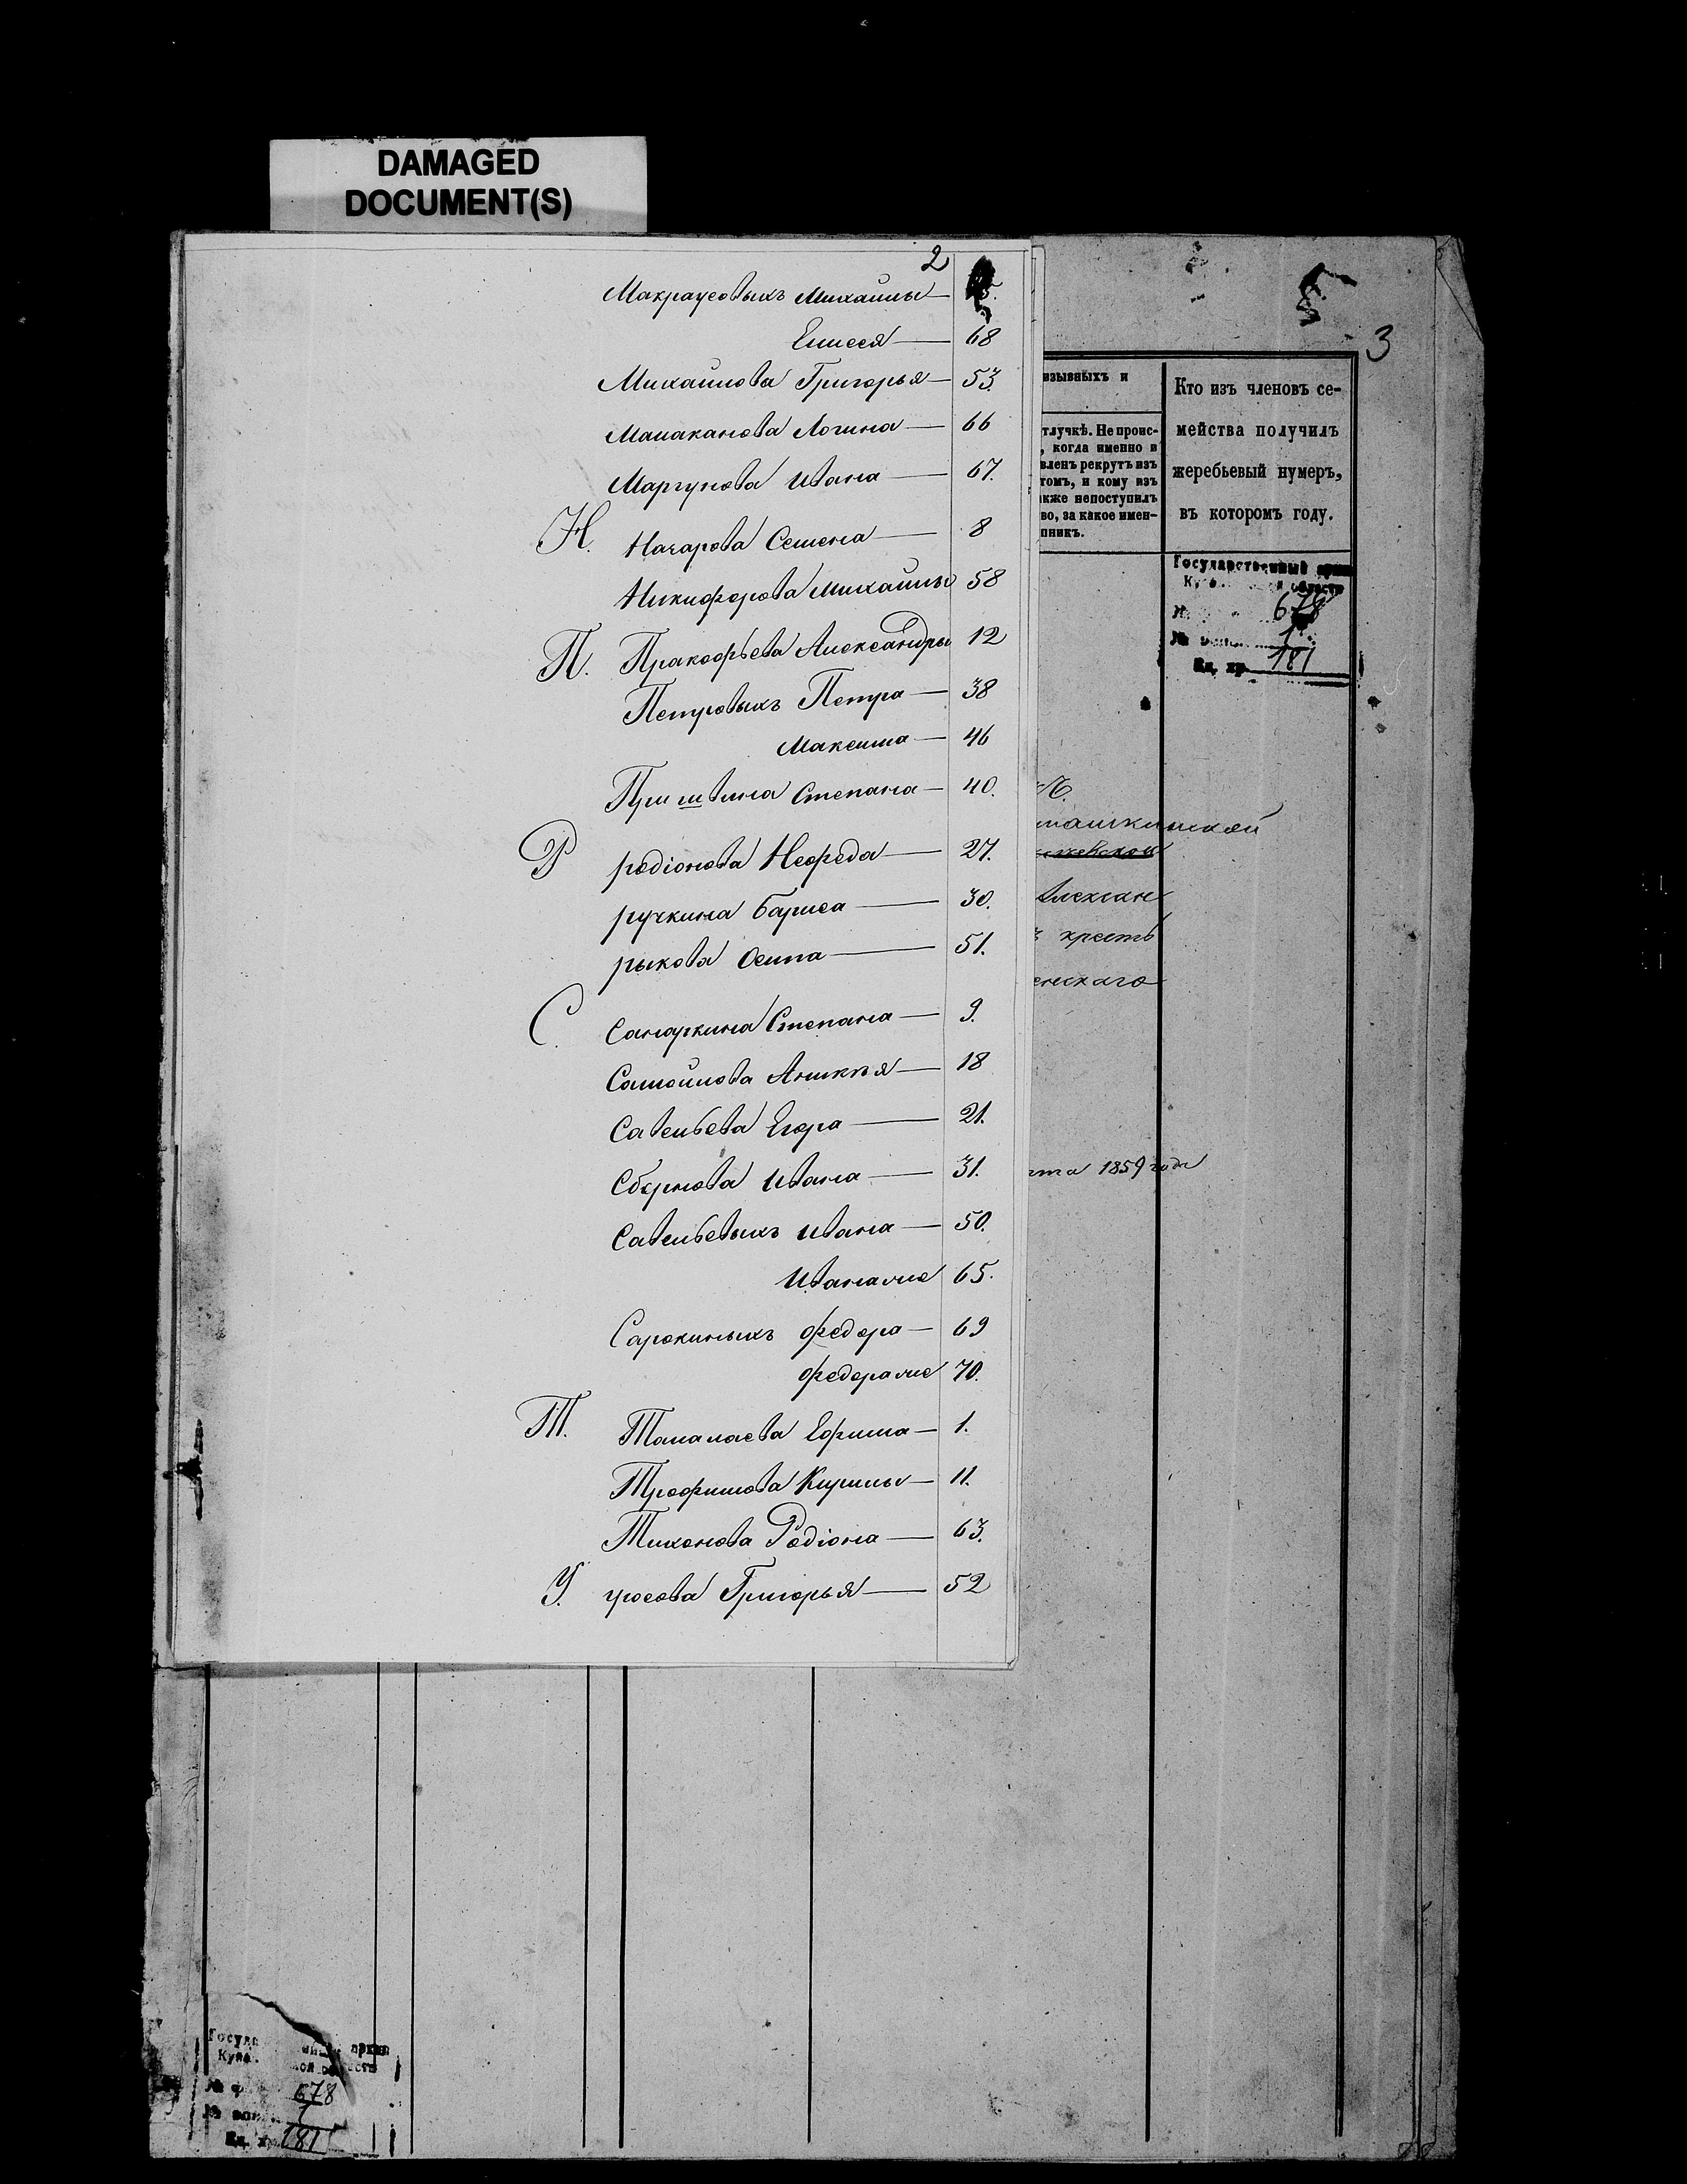 DAMAGED
DOCUMENT(S)
2
Макраусовыхъ Михайлы
Елисея — 68
Михайлова Григорья — 53.
Малаканова Логина — 66
Маргунова Ивана — 67.
Н. Назарова Семена — 8
Никифорова Михайлы 58
П. Пракофьева Александры 12
Петровыхъ Петра — 38
Максима — 46
Степана — 40.
Р родіонова Нефеда — 27.
ручкина Бариса — 30.
рыкова Осипа — 51.
С. Санаркина Степана — 9.
Самойлова Аникъя — 18
Савельева Егора — 21.
Ивана — 31.
Савельевыхъ Ивана — 50.
Иванаже 65.
Сарокиныхъ федора — 69
федораже 70.
Т. Таналаева Ефима — 1.
Трофимова Кирилы — 11.
Тихонова Родіона — 63.
У. усова Григорья — 52
3
изывныхъ и
тлучкѣ. Не проис-
, когда именно и
вленъ рекрутъ изъ
томъ, и кому изъ
кже непоступилъ
во, за какое имен-
пникъ.
Кто изъ членовъ се-
мейства получилъ
жеребьевый нумеръ,
въ которомъ году.
Государственный архив
678
1
Ед. хр. 181
машкинской
Алексан
крестъ
енскаго
рта 1859 года
678
1
Ед. хр. 181